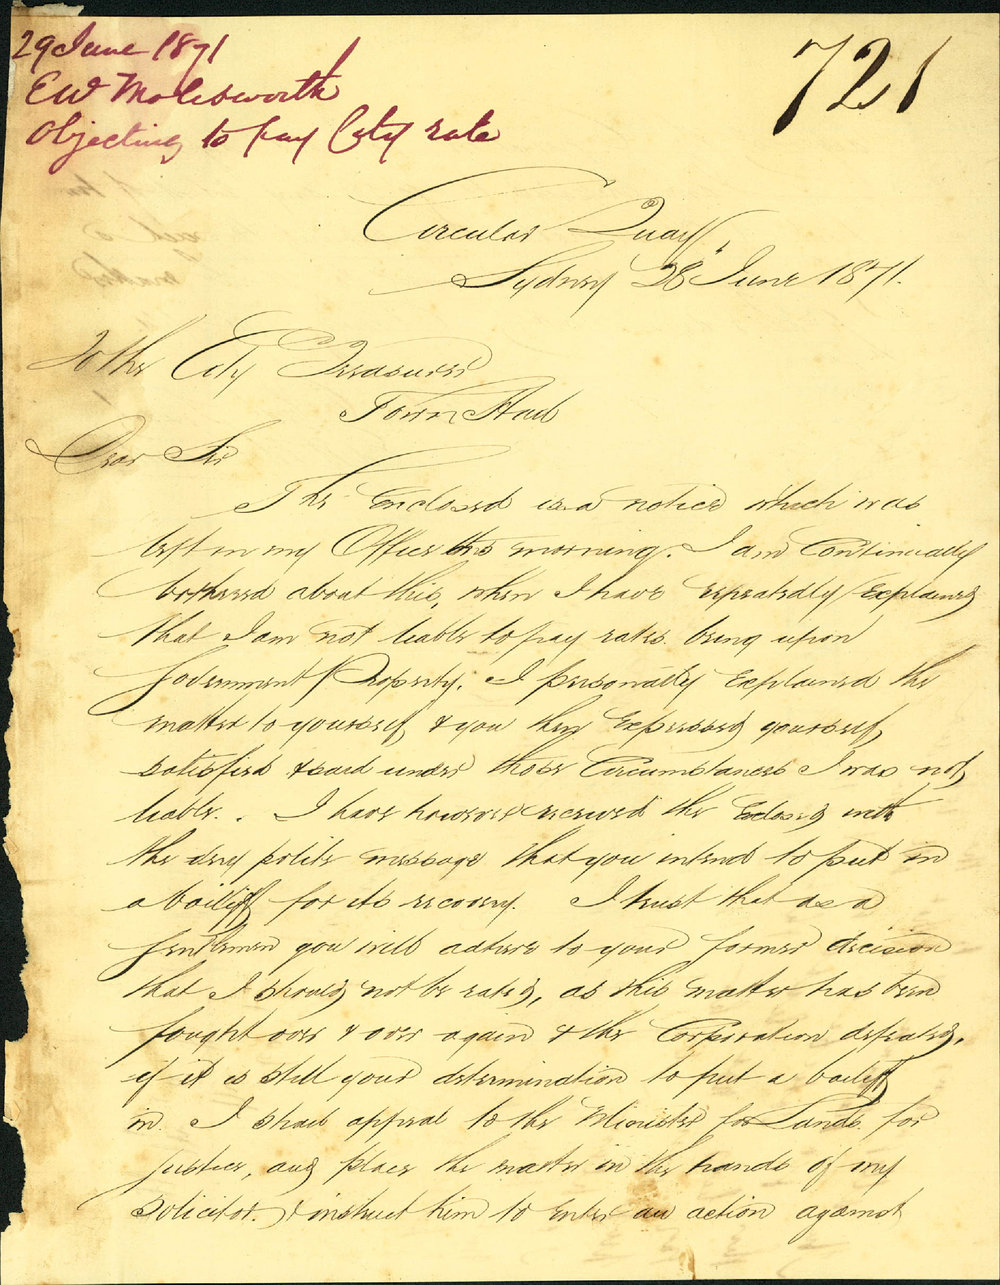 29 June 1871
EW Molesworth
Objecting to pay City rate
721
Circular Quay,
Sydney 28 June 1871.
To the City Treasurer
Town Hall
Dear Sir
The Enclosed is a notice which was
left in my Office this morning. I am Continually
bothered about this, when I have repeatedly Explained
that I am not liable to pay rates being upon
Government Property. I personally Explained the
matter to yourself & you then Expressed yourself
satisfied & said under those Circumstances I was not
liable. I have however received the Enclosed with
the very polite message that you intend to put in
a bailiff for its recovery. I trust that as a
Gentleman you will adhere to your former decision
that I should not be rated, as this matter has been
fought over & over again & the Corporation defeated,
if it is still your determination to put a bailiff
in. I shall appeal to the Minister for Lands for
justice, and place the matter in the hands of my
Solicitor. & instruct him to enter an action against